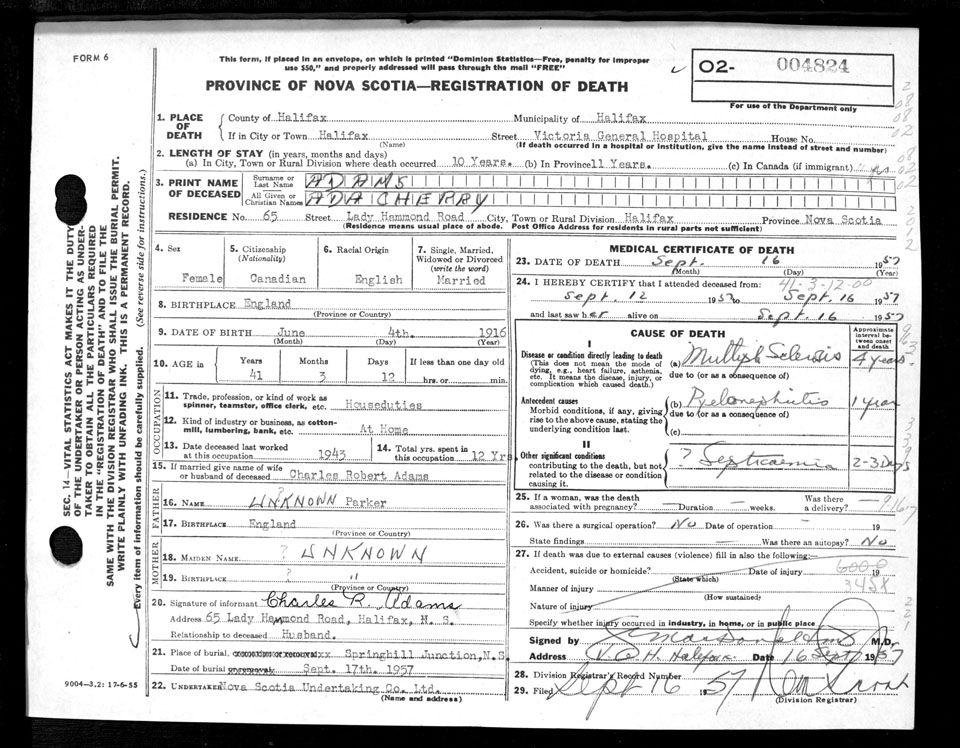 FORM 6
This form, if placed in an envelope, on which is printed "Dominion Statistics—Free, penalty for improper
use $50," and properly addressed will pass through the mail "FREE"
PROVINCE OF NOVA SCOTIA—REGISTRATION OF DEATH
02- 004824
For use of the Department only
1. PLACE OF DEATH
County of Halifax Municipality of Halifax
If in City or Town Halifax Street Victoria General Hospital House No.
(Name) (If death occurred in a hospital or institution, give the name instead of street and number)
2. LENGTH OF STAY (in years, months and days)
(a) In City, Town or Rural Division where death occurred 10 Years. (b) In Province 11 Years. (c) In Canada (if immigrant)
3. PRINT NAME OF DECEASED
Surname or Last Name ADAMS
All Given or Christian Names ADA CHERRY
RESIDENCE No. 65 Street Lady Hammond Road City, Town or Rural Division Halifax Province Nova Scotia
(Residence means usual place of abode. Post Office Address for residents in rural parts not sufficient)
4. Sex
Female
5. Citizenship
(Nationality)
Canadian
6. Racial Origin
English
7. Single, Married,
Widowed or Divorced
(write the word)
Married
8. BIRTHPLACE England
(Province or Country)
9. DATE OF BIRTH June 4th. 1916
(Month) (Day) (Year)
10. AGE in
Years Months Days If less than one day old
41 3 12 hrs. or min.
OCCUPATION
11. Trade, profession, or kind of work as
spinner, teamster, office clerk, etc. Houseduties
12. Kind of industry or business, as cotton-
mill, lumbering, bank, etc. At Home
13. Date deceased last worked
at this occupation 1943
14. Total yrs. spent in
this occupation 12 Yrs.
15. If married give name of wife
or husband of deceased Charles Robert Adams
FATHER
16. NAME UNKNOWN Parker
17. BIRTHPLACE England
(Province or Country)
MOTHER
18. MAIDEN NAME ? UNKNOWN
19. BIRTHPLACE ? "
(Province or Country)
20. Signature of informant Charles R. Adams
Address 65 Lady Hammond Road, Halifax, N. S.
Relationship to deceased Husband.
21. Place of burial, Springhill Junction, N.S.
Date of burial Sept. 17th. 1957
22. UNDERTAKER Nova Scotia Undertaking Co. Ltd.
(Name and address)
MEDICAL CERTIFICATE OF DEATH
23. DATE OF DEATH Sept. 16 1957
(Month) (Day) (Year)
41-3-12-00
24. I HEREBY CERTIFY that I attended deceased from:
Sept. 12 1957 to Sept. 16 1957
and last saw her alive on Sept. 16 1957
CAUSE OF DEATH
Approximate
interval between
onset
and death
I
Disease or condition directly leading to death
(This does not mean the mode of
dying, e.g., heart failure, asthenia,
etc. It means the disease, injury, or
complication which caused death.)
(a) Multiple Sclerosis 4 years
due to (or as a consequence of)
Antecedent causes
Morbid conditions, if any, giving
rise to the above cause, stating the
underlying condition last.
(b) Pyelonephritis 1 year
due to (or as a consequence of)
(c)
II
Other significant conditions
contributing to the death, but not
related to the disease or condition
causing it.
? Septicaemia 2-3 Days
25. If a woman, was the death
associated with pregnancy? — Duration — weeks. Was there
a delivery? —
26. Was there a surgical operation? No Date of operation - 19
State findings — Was there an autopsy? No
27. If death was due to external causes (violence) fill in also the following:
Accident, suicide or homicide? Date of injury 19
(State which)
600-0
Manner of injury
345X
(How sustained)
Nature of injury
Specify whether injury occurred in industry, in home, or in public place
Signed by M.D.
Address V.G.H. Halifax Date 16 Sept 1957
28. Division Registrar's Record Number
29. Filed Sept 16 1957
(Division Registrar)
SEC. 14—VITAL STATISTICS ACT MAKES IT THE DUTY
OF THE UNDERTAKER OR PERSON ACTING AS UNDER-
TAKER TO OBTAIN ALL THE PARTICULARS REQUIRED
IN THE "REGISTRATION OF DEATH" AND TO FILE THE
SAME WITH THE DIVISION REGISTRAR WHO SHALL ISSUE THE BURIAL PERMIT.
WRITE PLAINLY WITH UNFADING INK. THIS IS A PERMANENT RECORD.
Every item of information should be carefully supplied. (See reverse side for instructions.)
9004—3.2: 17-6-55